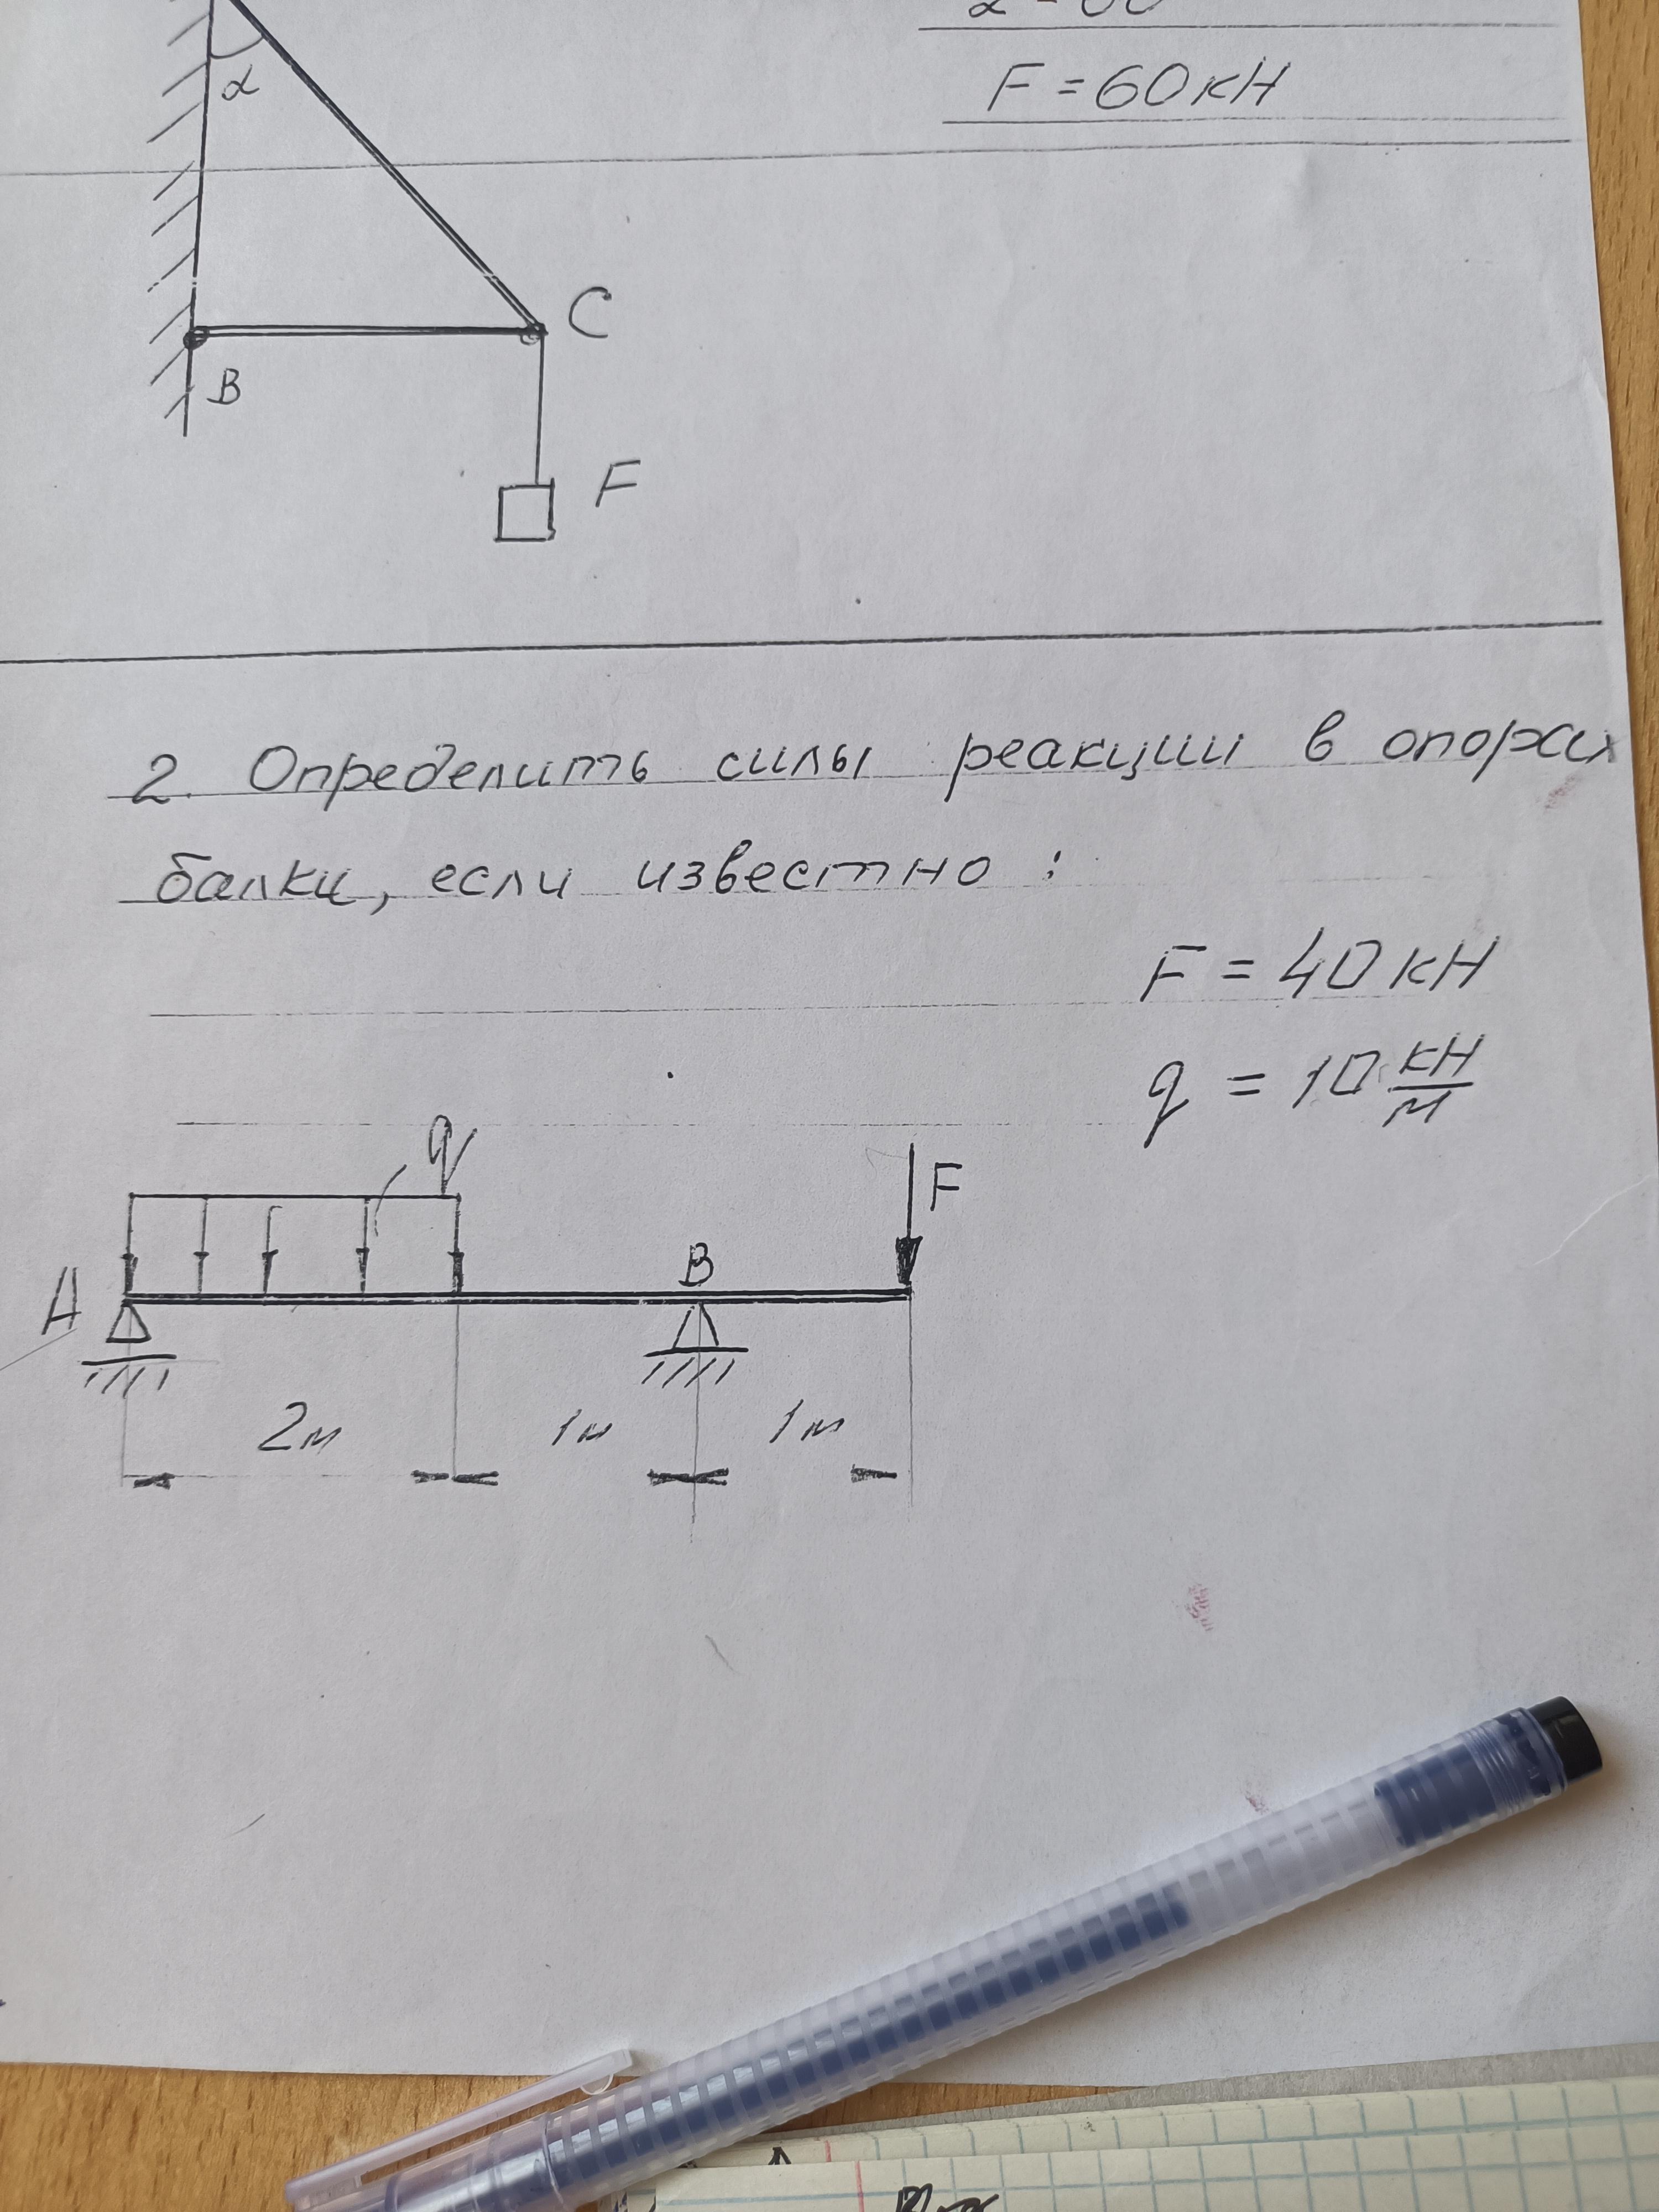 α
F = 60 кН
C
B
F
2. Определить силы реакции в опорах
балки, если известно :
F = 40 кН
q = 10 кН/м
q
F
B
A
2м 1м 1м